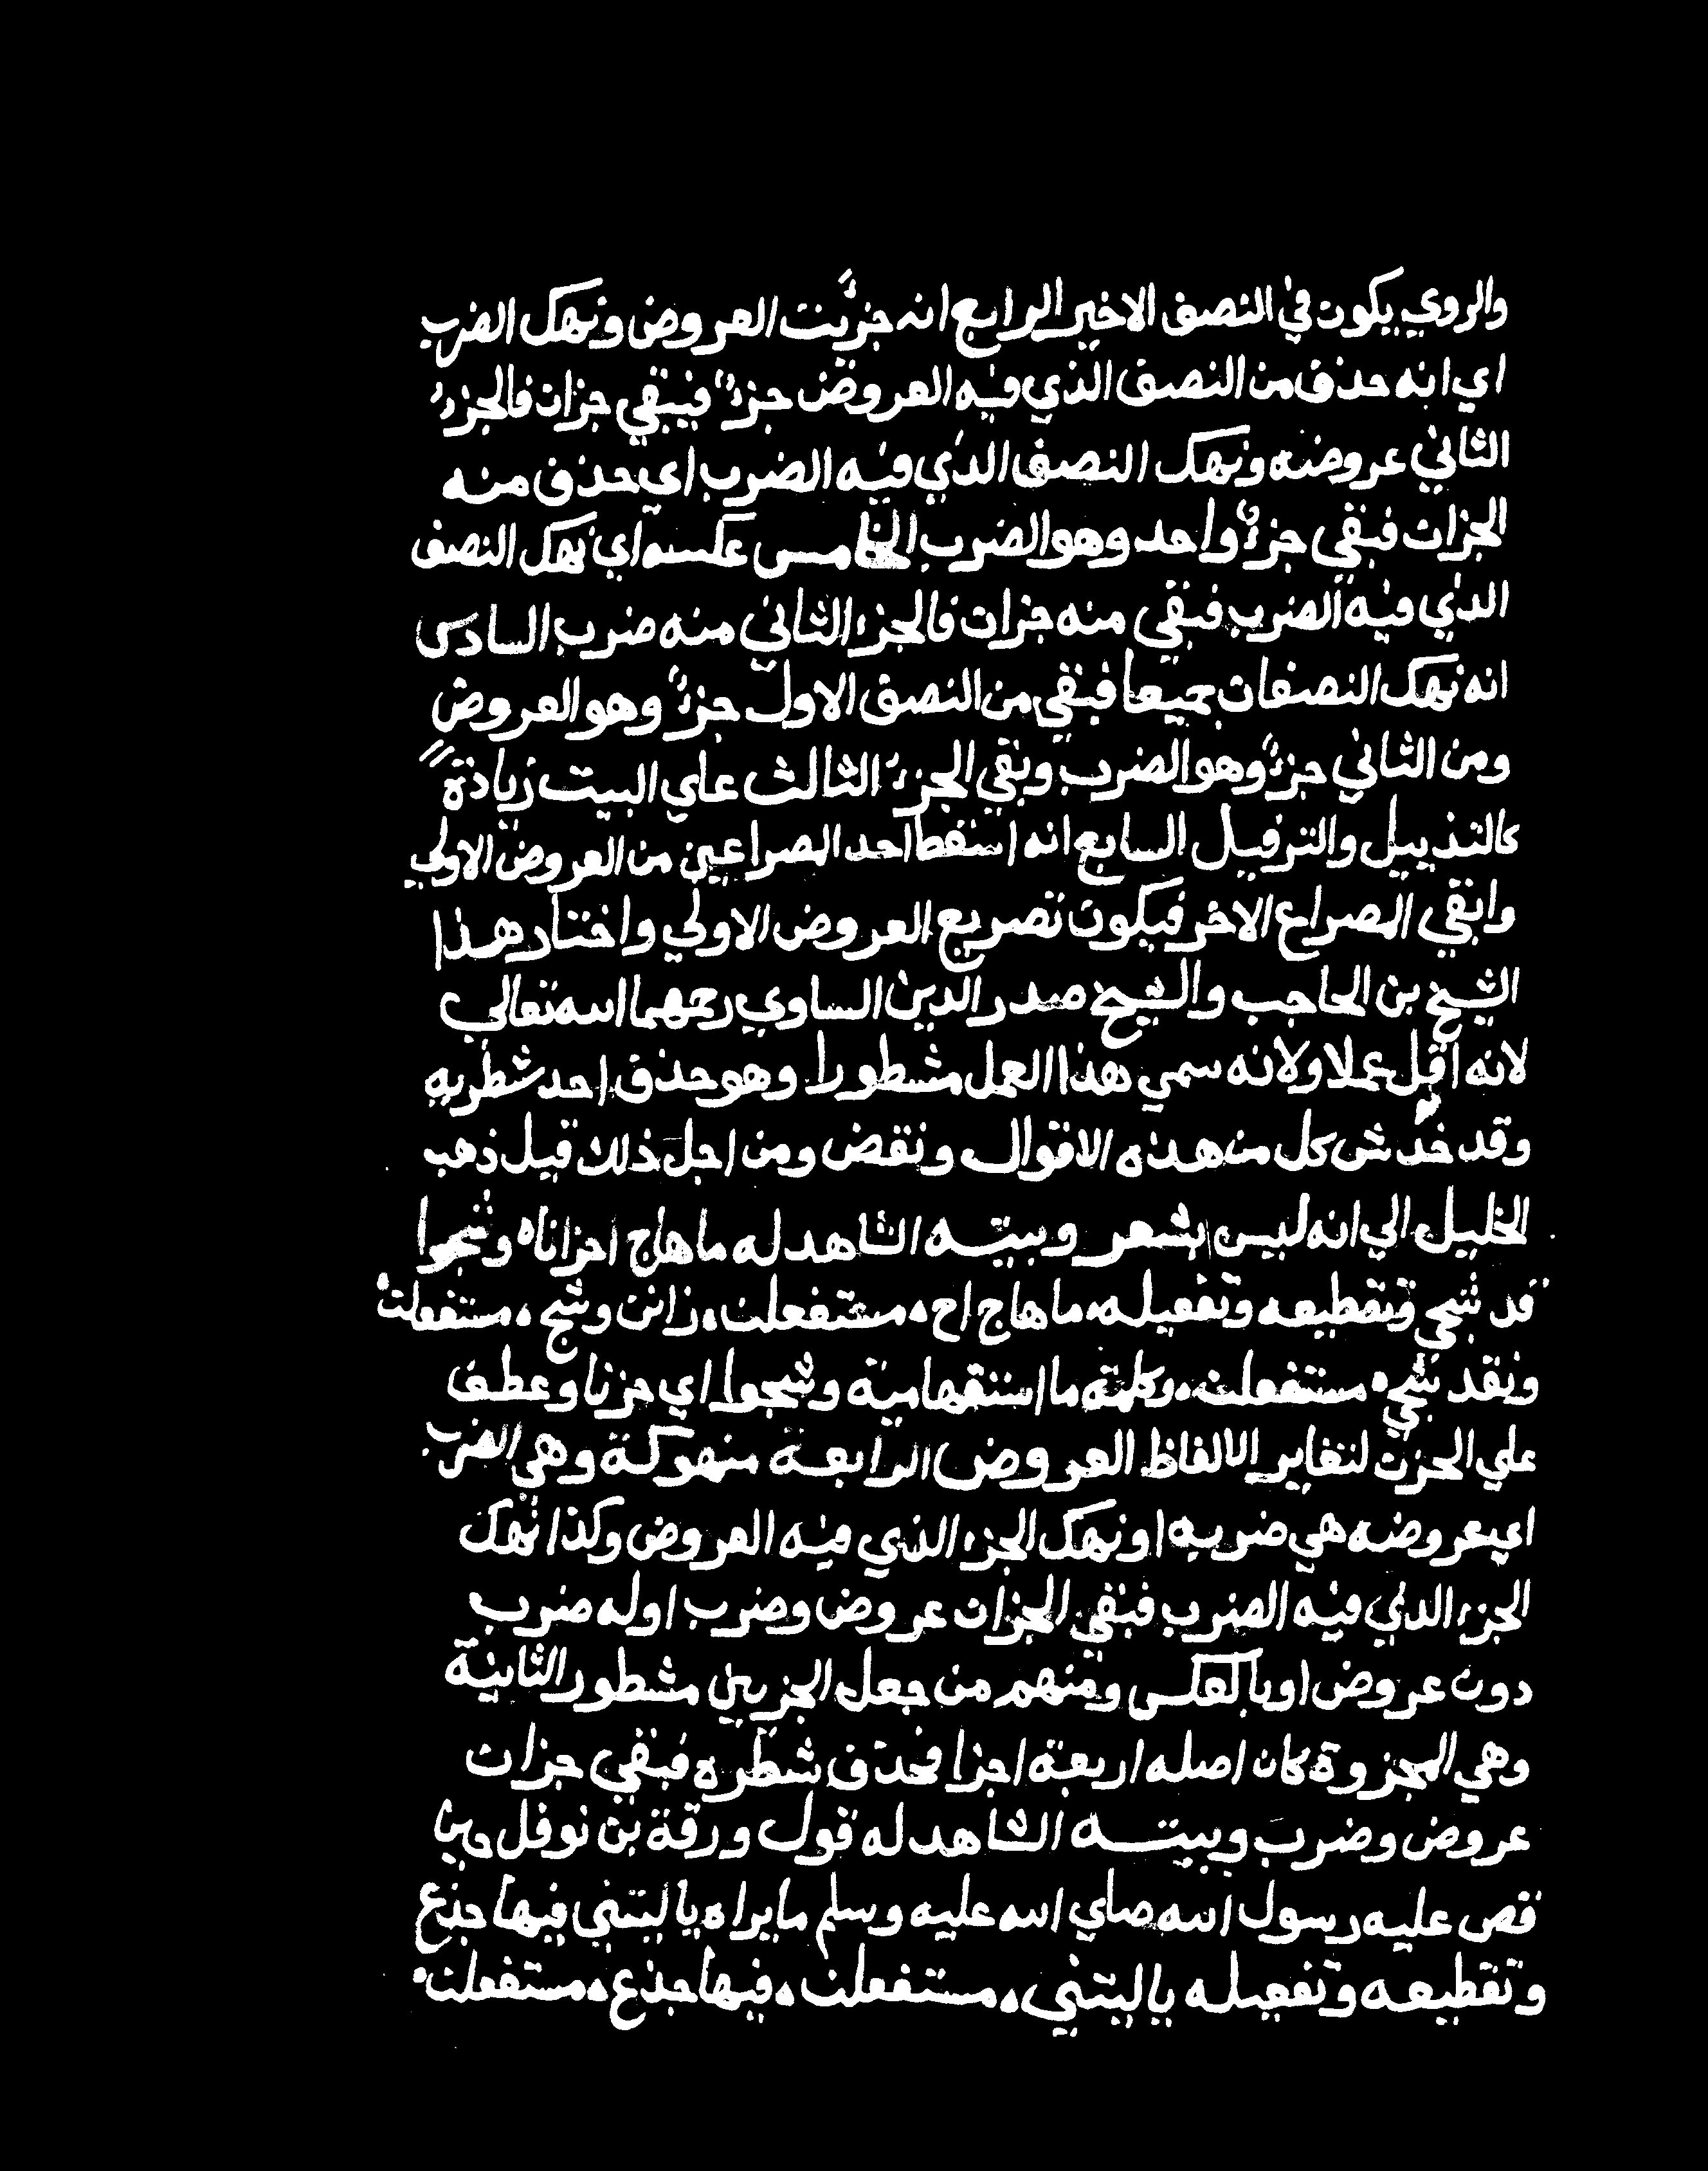 والروي يكون في النصف الاخير الرابع انه جزئت العروض ونهك الضرب
اي انه حذف من النصف الذي فيه العروض جزءً فيبقي جزان فالجزء
الثاني عروضه ونهك النصف الذي فيه الضرب اي حذف منه
الجزان فبقي جزءٌ واحد وهو الضرب الخامس عكسه اي نهك النصف
الذي فيه الضرب فبقي منه جزان فالجزء الثاني منه ضرب السادس
انه نهك النصفان جميعا فبقي من النصف الاول جزءً وهو العروض
ومن الثاني جزءً وهو الضرب وبقي الجزء الثالث علي البيت زيادة
كالتذييل والترفيل السابع انه اسقط احد المصراعين من العروض الاولي
وابقي المصراع الاخر فيكون تصريع العروض الاولي واختار هذا
الشيخ بن الحاجب والشيخ صدر الدين الساوي رحمهما الله تعالي
لانه اقل عملا ولانه سمي هذا العمل مشطورا وهو حذف احد شطريه
وقد خدّش كل من هذه الاقوال ونقض ومن اجل ذلك قيل ذهب
الخليل الي انه ليس بشعر وبيته الشاهد له ما هاج احزانا ه وشجوا
قد شجي وتقطيعه وتفعيله، ما هاج اح ، مستفعلن، زانن وشج ، مستفعلن
ونقد شجي ه مستفعلن، وكلمة ما استفهامية وشجوا اي حزنا وعطف
علي الحزن لتغاير الالفاظ العروض الرابعة منهوكة وهي الضرب
اي عروضه هي ضربه او نهك الجزء الذي فيه العروض وكذا نهك
الجزء الذي فيه الضرب فبقي الجزان عروض وضرب اوله ضرب
دون عروض او بالعكس ومنهم من جعل الجزيين مشطور الثانية
وهي المجزوة كان اصله اربعة اجزا فحذف شطره فبقي جزان
عروض وضرب وبيته الشاهد له قول ورقة بن نوفل حين
قص عليه رسول الله صلي الله عليه وسلم ما يراه يا ليتني فيها جذع
وتقطيعه وتفعيله يا ليتني ، مستفعلن ، فيها جذع ، مستفعلن